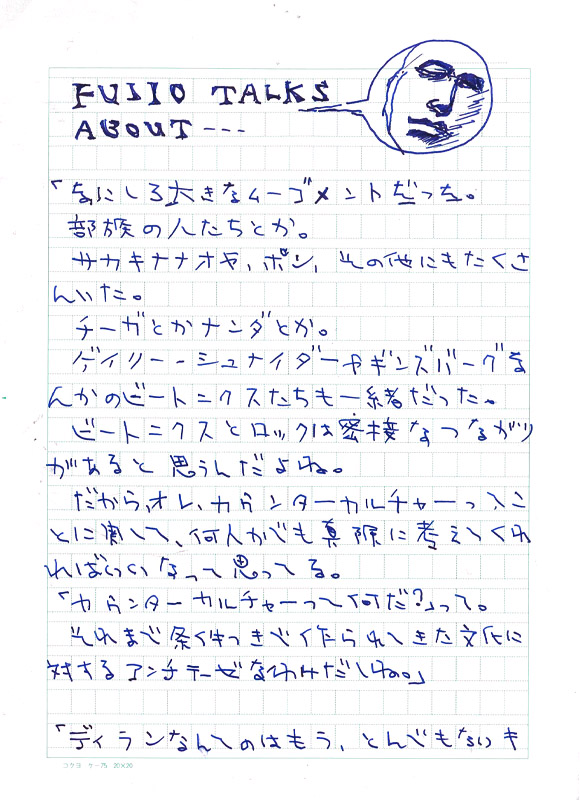 FUJIO TALKS
ABOUT---
「なにしろ大きなムーブメントだった。
部族の人たちとか。
サカキナナオや、ポン、その他にもたくさ
んいた。
チーガとかナンダとか。
ゲイリー・シュナイダーやギンズバーグな
んかのビートニクスたちも一緒だった。
ビートニクスとロックは密接なつながり
があると思うんだよね。
だから、オレ、カウンターカルチャーってこ
とに関して、何人かでも真険に考えてくれ
ればいいなって思ってる。
「カウンターカルチャーって何だ?」って。
それまで条件つきで作られてきた文化に
対するアンチテーゼなわけだしね。」
「ディランなんてのはもう、とんでもないキ
コクヨ ケ-75 20×20